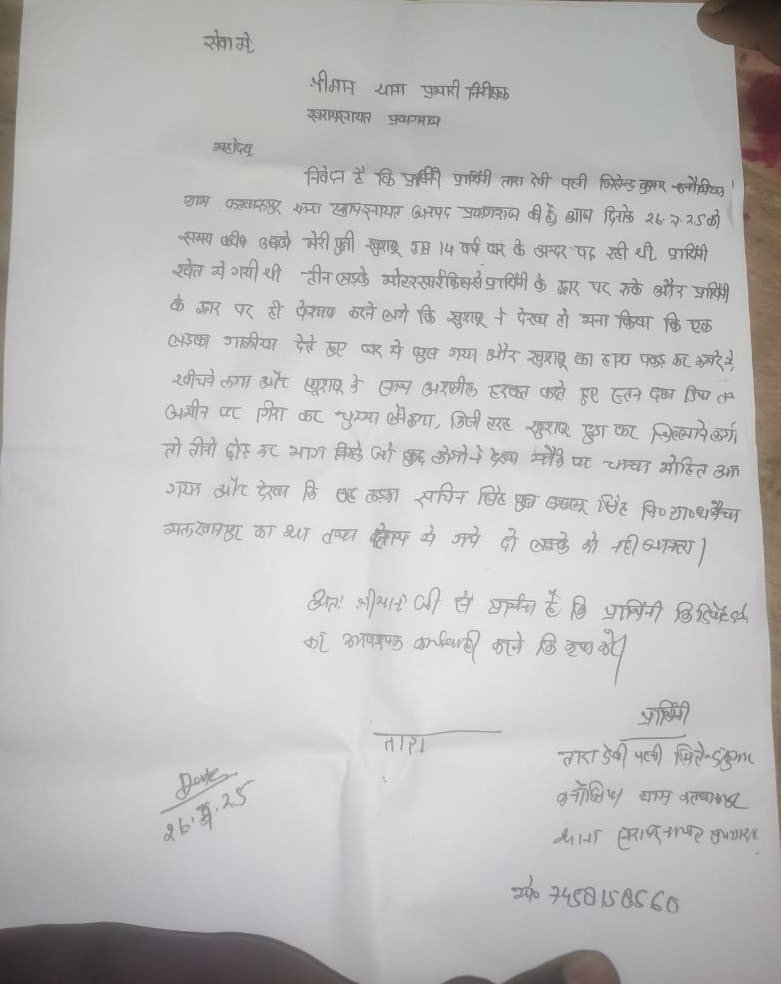 सेवा मे
श्रीमान थाना प्रभारी निरीक्षक
सरायममरेज प्रयागराज
महोदय
निवेदन है कि प्रार्थिनी तारा देवी पत्नी जितेन्द्र कुमार
ग्राम थाना जनपद प्रयागराज की है, आज दिनांक 26.7.25 को
समय करीब मेरी पुत्री खुशबू उम्र 14 वर्ष घर के अन्दर पढ़ रही थी प्रार्थिनी
खेत मे गयी थी तीन लड़के मोटरसाईकिल से प्रार्थिनी के द्वार पर रुके और प्रार्थिनी
के द्वार पर ही पेशाब करने लगे कि खुशबू ने देखा तो मना किया कि एक
लड़का गालीया देते हुए घर मे घुस गया और खुशबू का हाथ पकड़ कर कमरे मे
खीचने लगा और खुशबू के साथ अश्लील हरकत करते हुए
जमीन पर गिरा कर किसी तरह खुशबू छुडा कर चिल्लाने लगी
तो तीनो दौड़ कर भाग निकले जो कुछ लोगो ने देखा मौके पर चाचा मोहित आ
गया और देखा कि वह लड़का सचिन सिंह पुत्र सिंह नि० ग्रा०
का था तथा साथ मे गये दो लड़के को नही जानता।
अतः श्रीमान जी से प्रार्थना है कि प्रार्थिनी कि रिपोर्ट दर्ज
कर आवश्यक कार्यवाही करने कि कृपा करे।
प्रार्थिनी
तारा
तारा देवी पत्नी जितेन्द्र कुमार
ग्राम
थाना
Date
26.7.25
मो० 7458158560